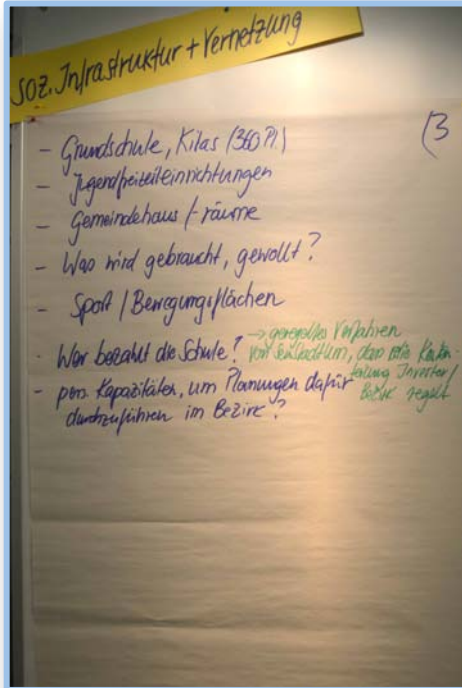 soz. Infrastruktur + Vernetzung
(3
- Grundschule, Kitas (360 Pl.)
- Jugendfreizeiteinrichtungen
- Gemeindehaus /-räume
- Was wird gebraucht, gewollt?
- Sport / Bewegungsflächen
- Wer bezahlt die Schule? → generelles Verfahren
von SenStadtUm, das Kosten-
teilung Investor/
Bezirk regelt
- pers. Kapazitäten, um Planungen dafür
durchzuführen im Bezirk?